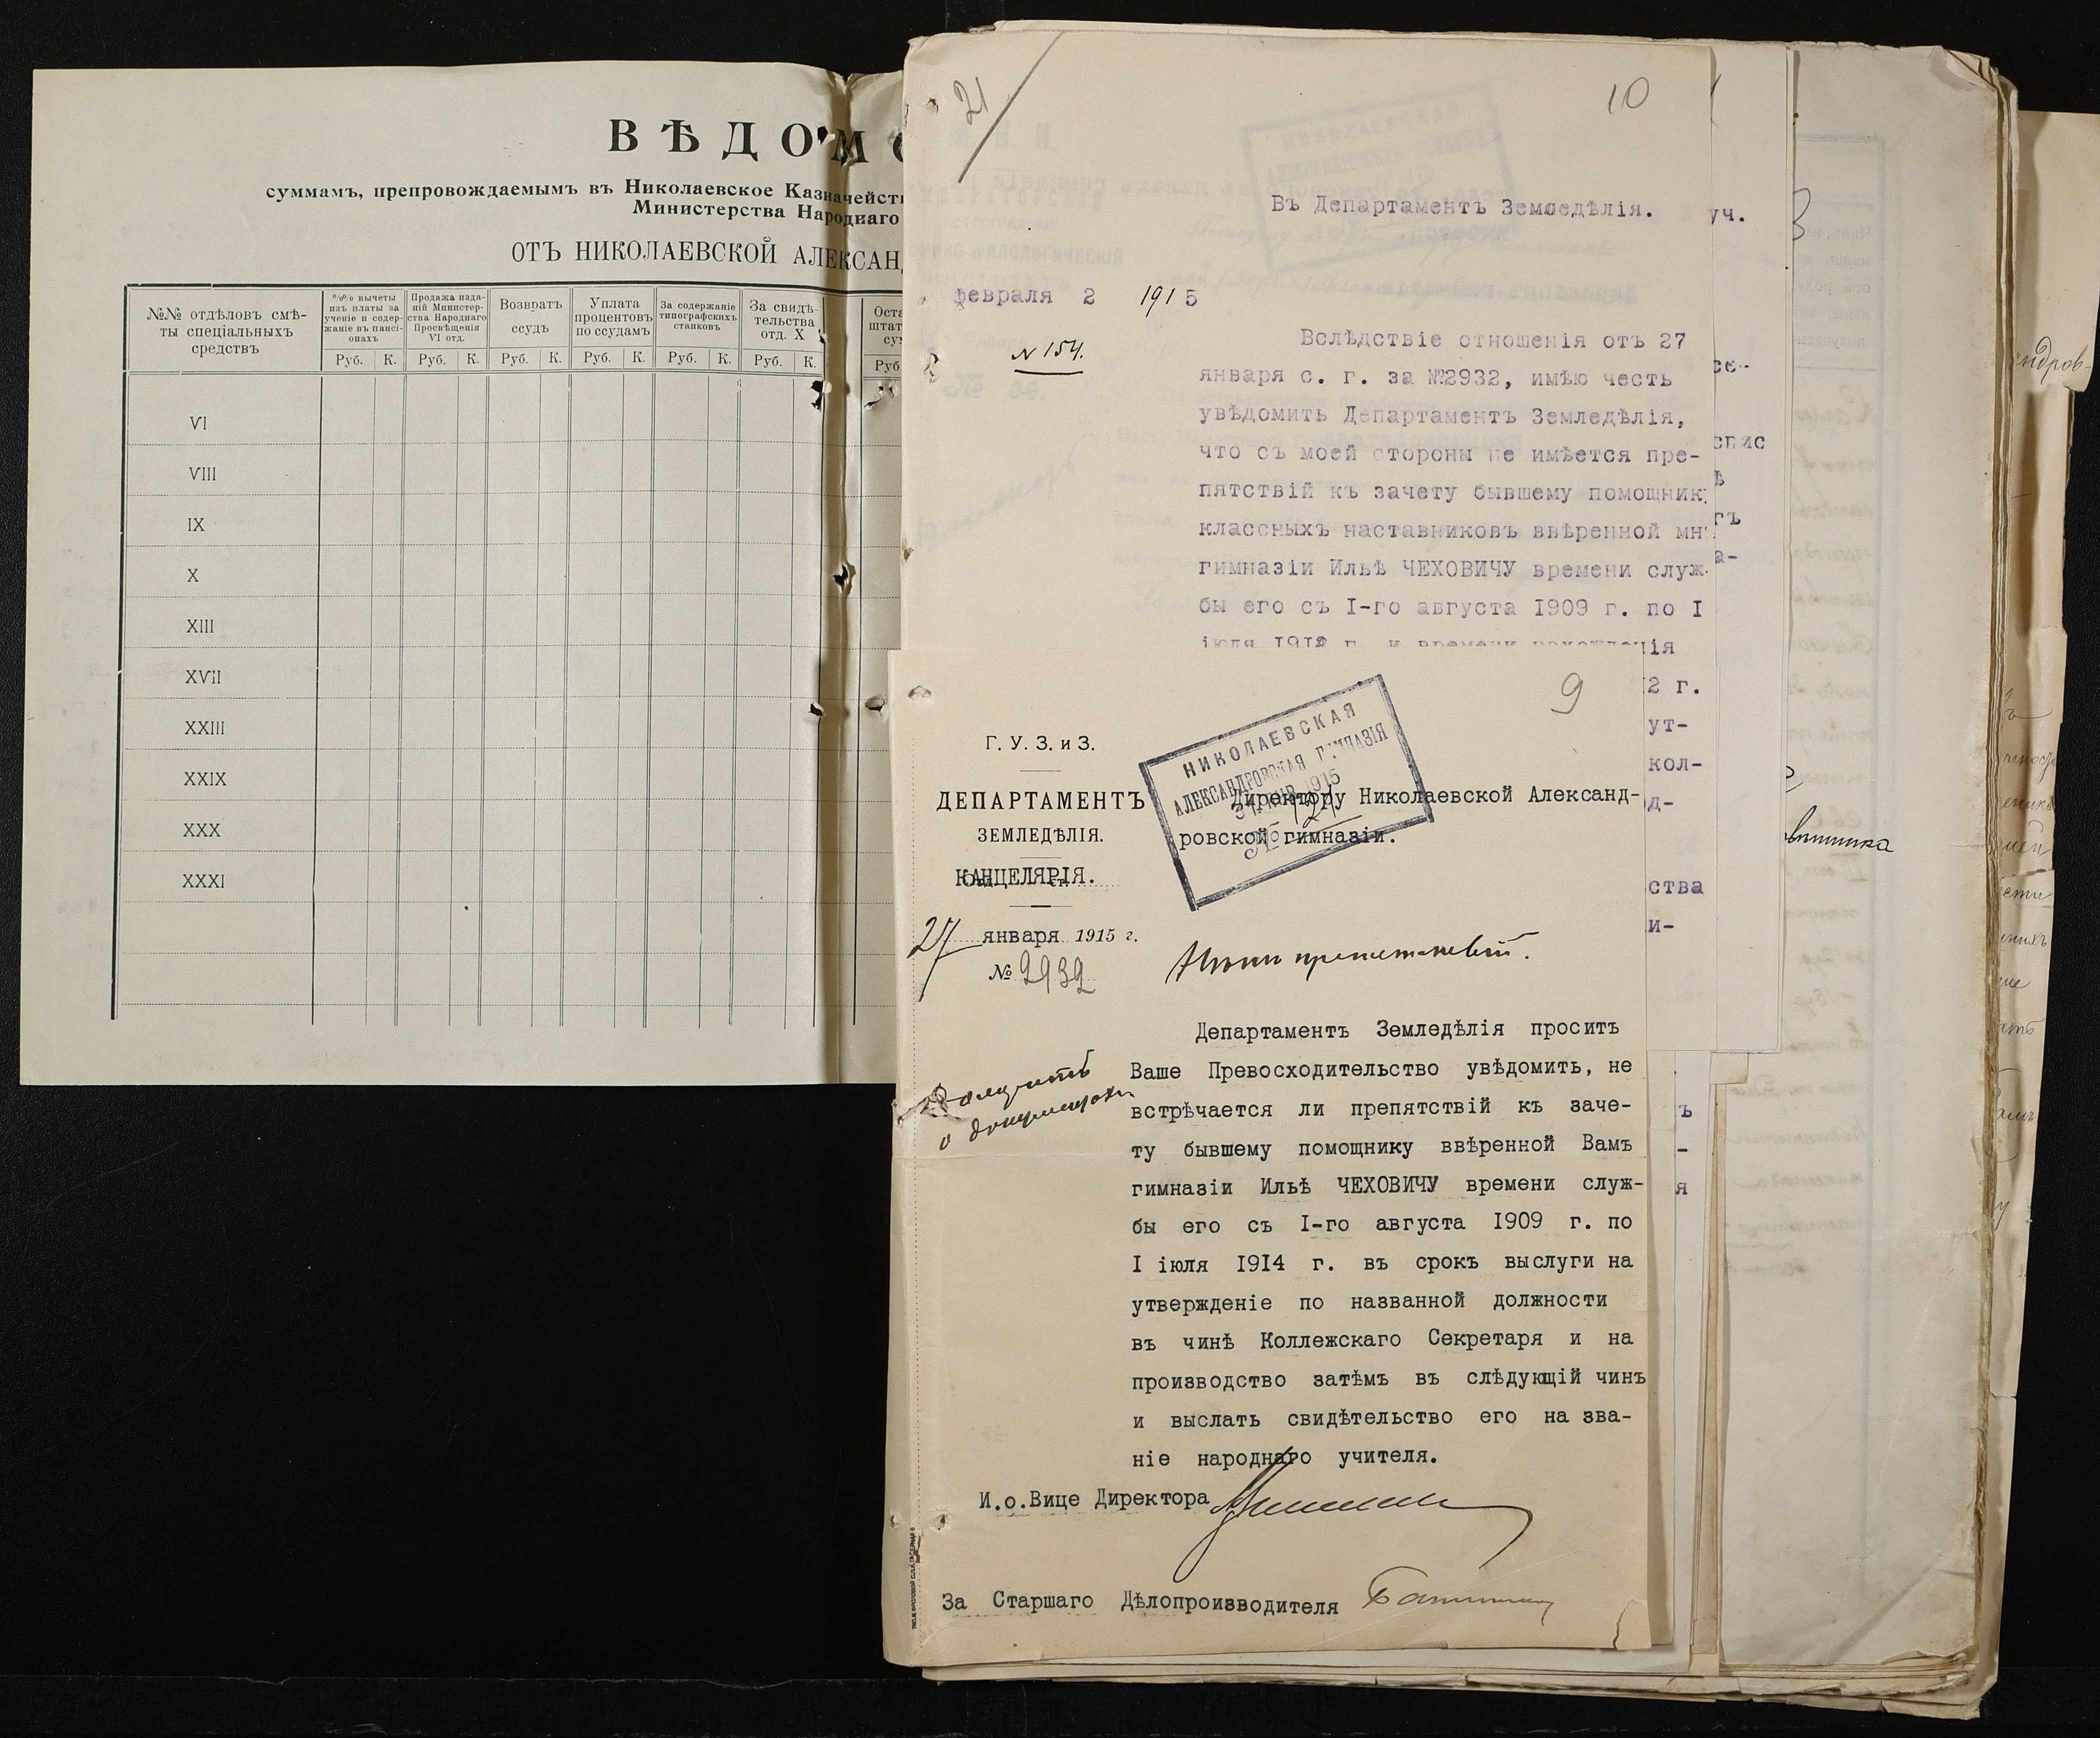 ВѢДОМО
суммамъ, препровождаемымъ въ Николаевское Казначейст
Министерства Народнаго
ОТЪ НИКОЛАЕВСКОЙ АЛЕКСАН
№№ отдѣловъ смѣ-
ты спеціальныхъ
средствъ
%% вычеты
изъ платы за
ученіе и содер-
жаніе въ пансі-
онахъ
Продажа изда-
ній Министер-
ства Народнаго
Просвѣщенія
VI отд.
Возвратъ
ссудъ
Уплата
процентовъ
по ссудамъ
За содержаніе
типографскихъ
станковъ
За свидѣ-
тельства
отд. X
Оста
штат
су
Руб. К. Руб. К. Руб. К. Руб. К. Руб. К. Руб. К. Руб
VI
VIII
IX
X
XIII
XVII
XXIII
XXIX
XXX
XXXI
21
10
Въ Департаментъ Земледѣлія.
февраля 2 1915
N 154.
Вслѣдствіе отношенія отъ 27
января с. г. за №2932, имѣю честь
увѣдомить Департаментъ Земледѣлія,
что съ моей стороны не имѣется пре-
пятствій къ зачету бывшему помощник
классныхъ наставниковъ ввѣренной мн
гимназіи Ильѣ ЧЕХОВИЧУ времени служ-
бы его съ I-го августа I909 г. по I
іюля г. и времени нахожденія
2 г.
ут-
кол-
д-
ства
и-
уч.
се-
спис
ѣ
гъ
а-
9
Г. У. З. и З.
ДЕПАРТАМЕНТЪ
ЗЕМЛЕДѢЛІЯ.
КАНЦЕЛЯРІЯ.
27 января 1915 г.
№ 2932
НИКОЛАЕВСКАЯ
АЛЕКСАНДРОВСКАЯ ГИМНАЗІЯ
31 ЯНВ 1915
№ 121
Директору Николаевской Александ-
ровской гимназіи.
Департаментъ Земледѣлія проситъ
Ваше Превосходительство увѣдомить, не
встрѣчается ли препятствій къ заче-
ту бывшему помощнику ввѣренной Вамъ
гимназіи Ильѣ ЧЕХОВИЧУ времени служ-
бы его съ I-го августа I909 г. по
I іюля I9I4 г. въ срокъ выслуги на
утвержденіе по названной должности
въ чинѣ Коллежскаго Секретаря и на
производство затѣмъ въ слѣдующій чинъ
и выслать свидѣтельство его на зва-
ніе народнаго учителя.
И.о.Вице Директора
За Старшаго Дѣлопроизводителя
ъ
-
я